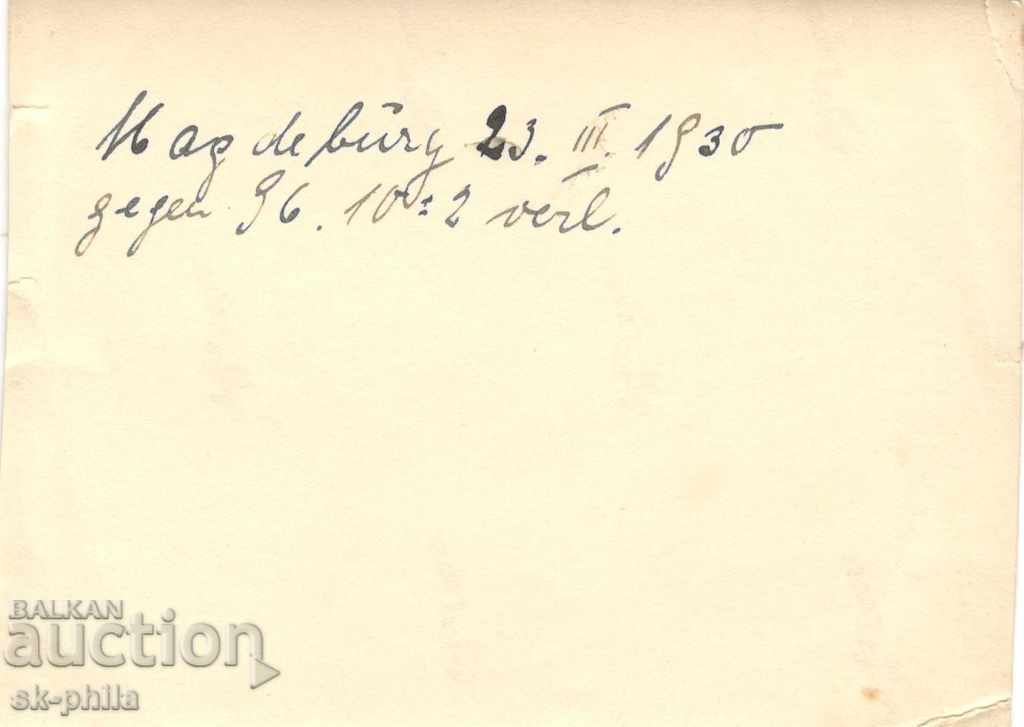 Magdebūrg 23. III. 1930
gegen 96. 10:2 verl.
BALKAN
auction
sk-phila